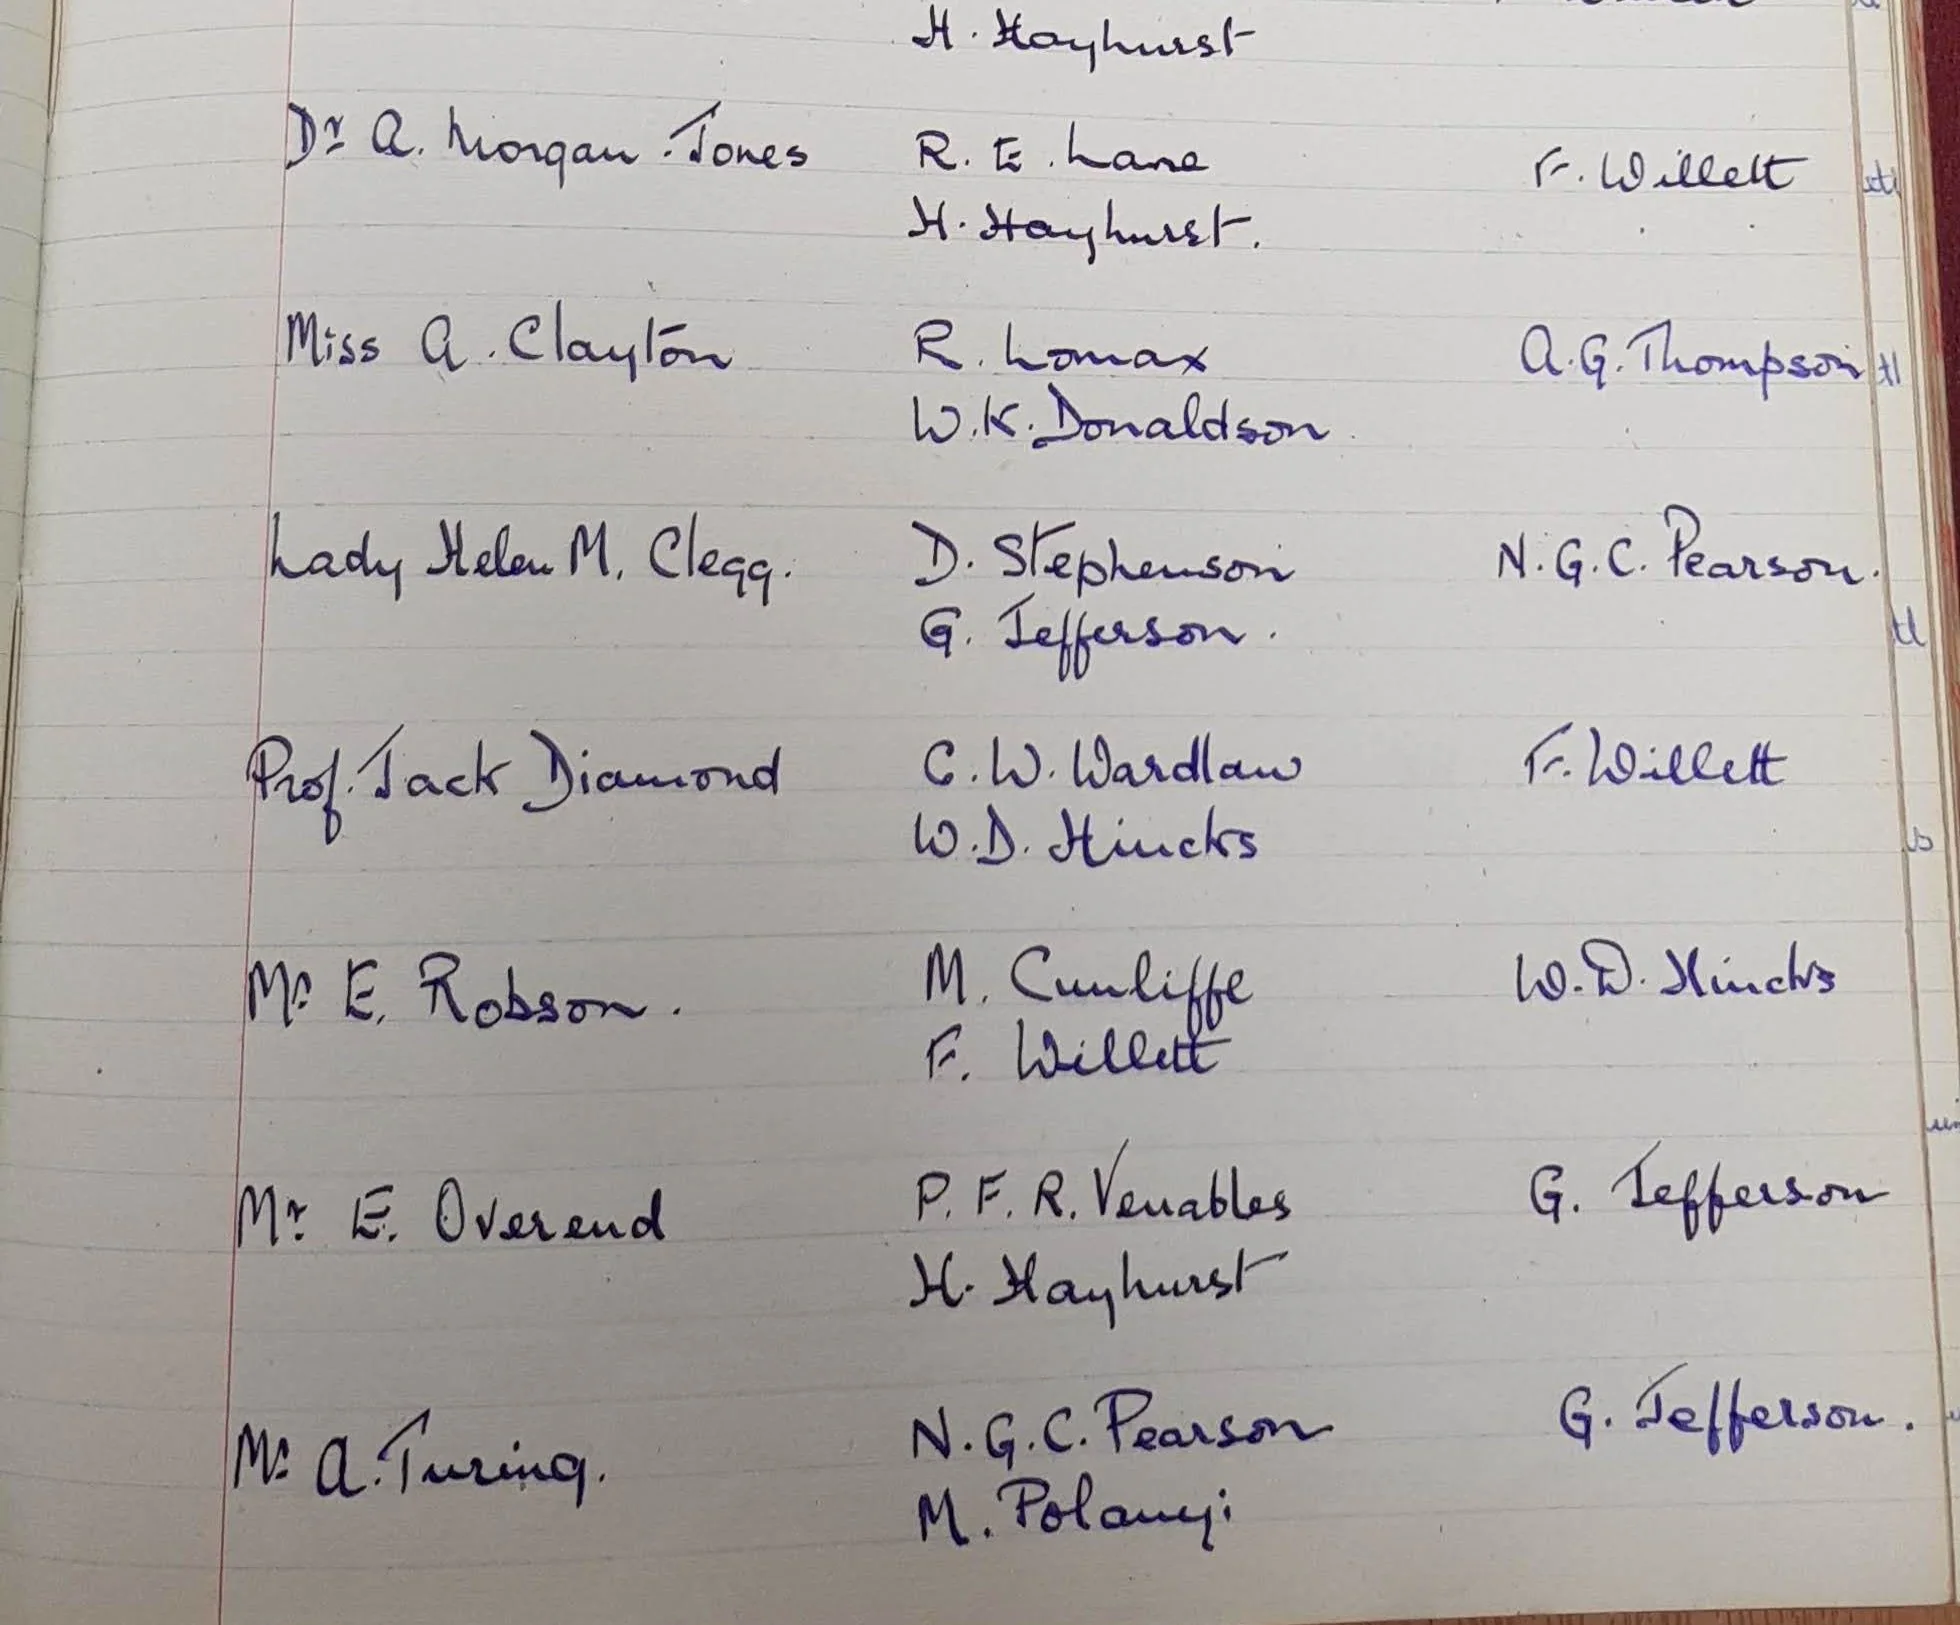 H. Hayhurst
Dr A. Morgan-Jones R. E. Lane F. Willett
H. Hayhurst.
Miss A. Clayton R. Lomax A.G. Thompson
W.K. Donaldson
Lady Helen M. Clegg. D. Stephenson N.G.C. Pearson.
G. Jefferson.
Prof. Jack Diamond C.W. Wardlaw F. Willett
W.D. Hincks
Mr E. Robson. M. Cunliffe W.D. Hincks
F. Willett
Mr E. Overend P.F.R. Venables G. Jefferson
H. Hayhurst
Mr A. Turing. N.G.C. Pearson G. Jefferson.
M. Polanyi